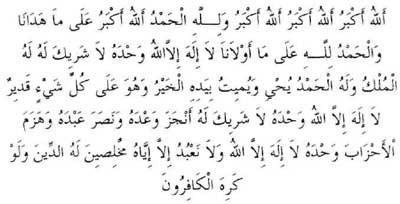 اَللهُ أَكْبَرُ اَللهُ أَكْبَرُ اَللهُ أَكْبَرُ وَلِلَّهِ الْحَمْدُ اَللهُ أَكْبَرُ عَلَى مَا هَدَانَا
وَالْحَمْدُ لِلَّهِ عَلَى مَا أَوْلَانَا لَا إِلَهَ إِلَّا اللهُ وَحْدَهُ لَا شَرِيكَ لَهُ لَهُ
الْمُلْكُ وَلَهُ الْحَمْدُ يُحْيِ وَيُمِيتُ بِيَدِهِ الْخَيْرُ وَهُوَ عَلَى كُلِّ شَيْءٍ قَدِيرٌ
لَا إِلَهَ إِلَّا اللهُ وَحْدَهُ لَا شَرِيكَ لَهُ أَنْجَزَ وَعْدَهُ وَنَصَرَ عَبْدَهُ وَهَزَمَ
الْأَحْزَابَ وَحْدَهُ لَا إِلَهَ إِلَّا اللهُ وَلَا نَعْبُدُ إِلَّا إِيَّاهُ مُخْلِصِينَ لَهُ الدِّينَ وَلَوْ
كَرِهَ الْكَافِرُونَ